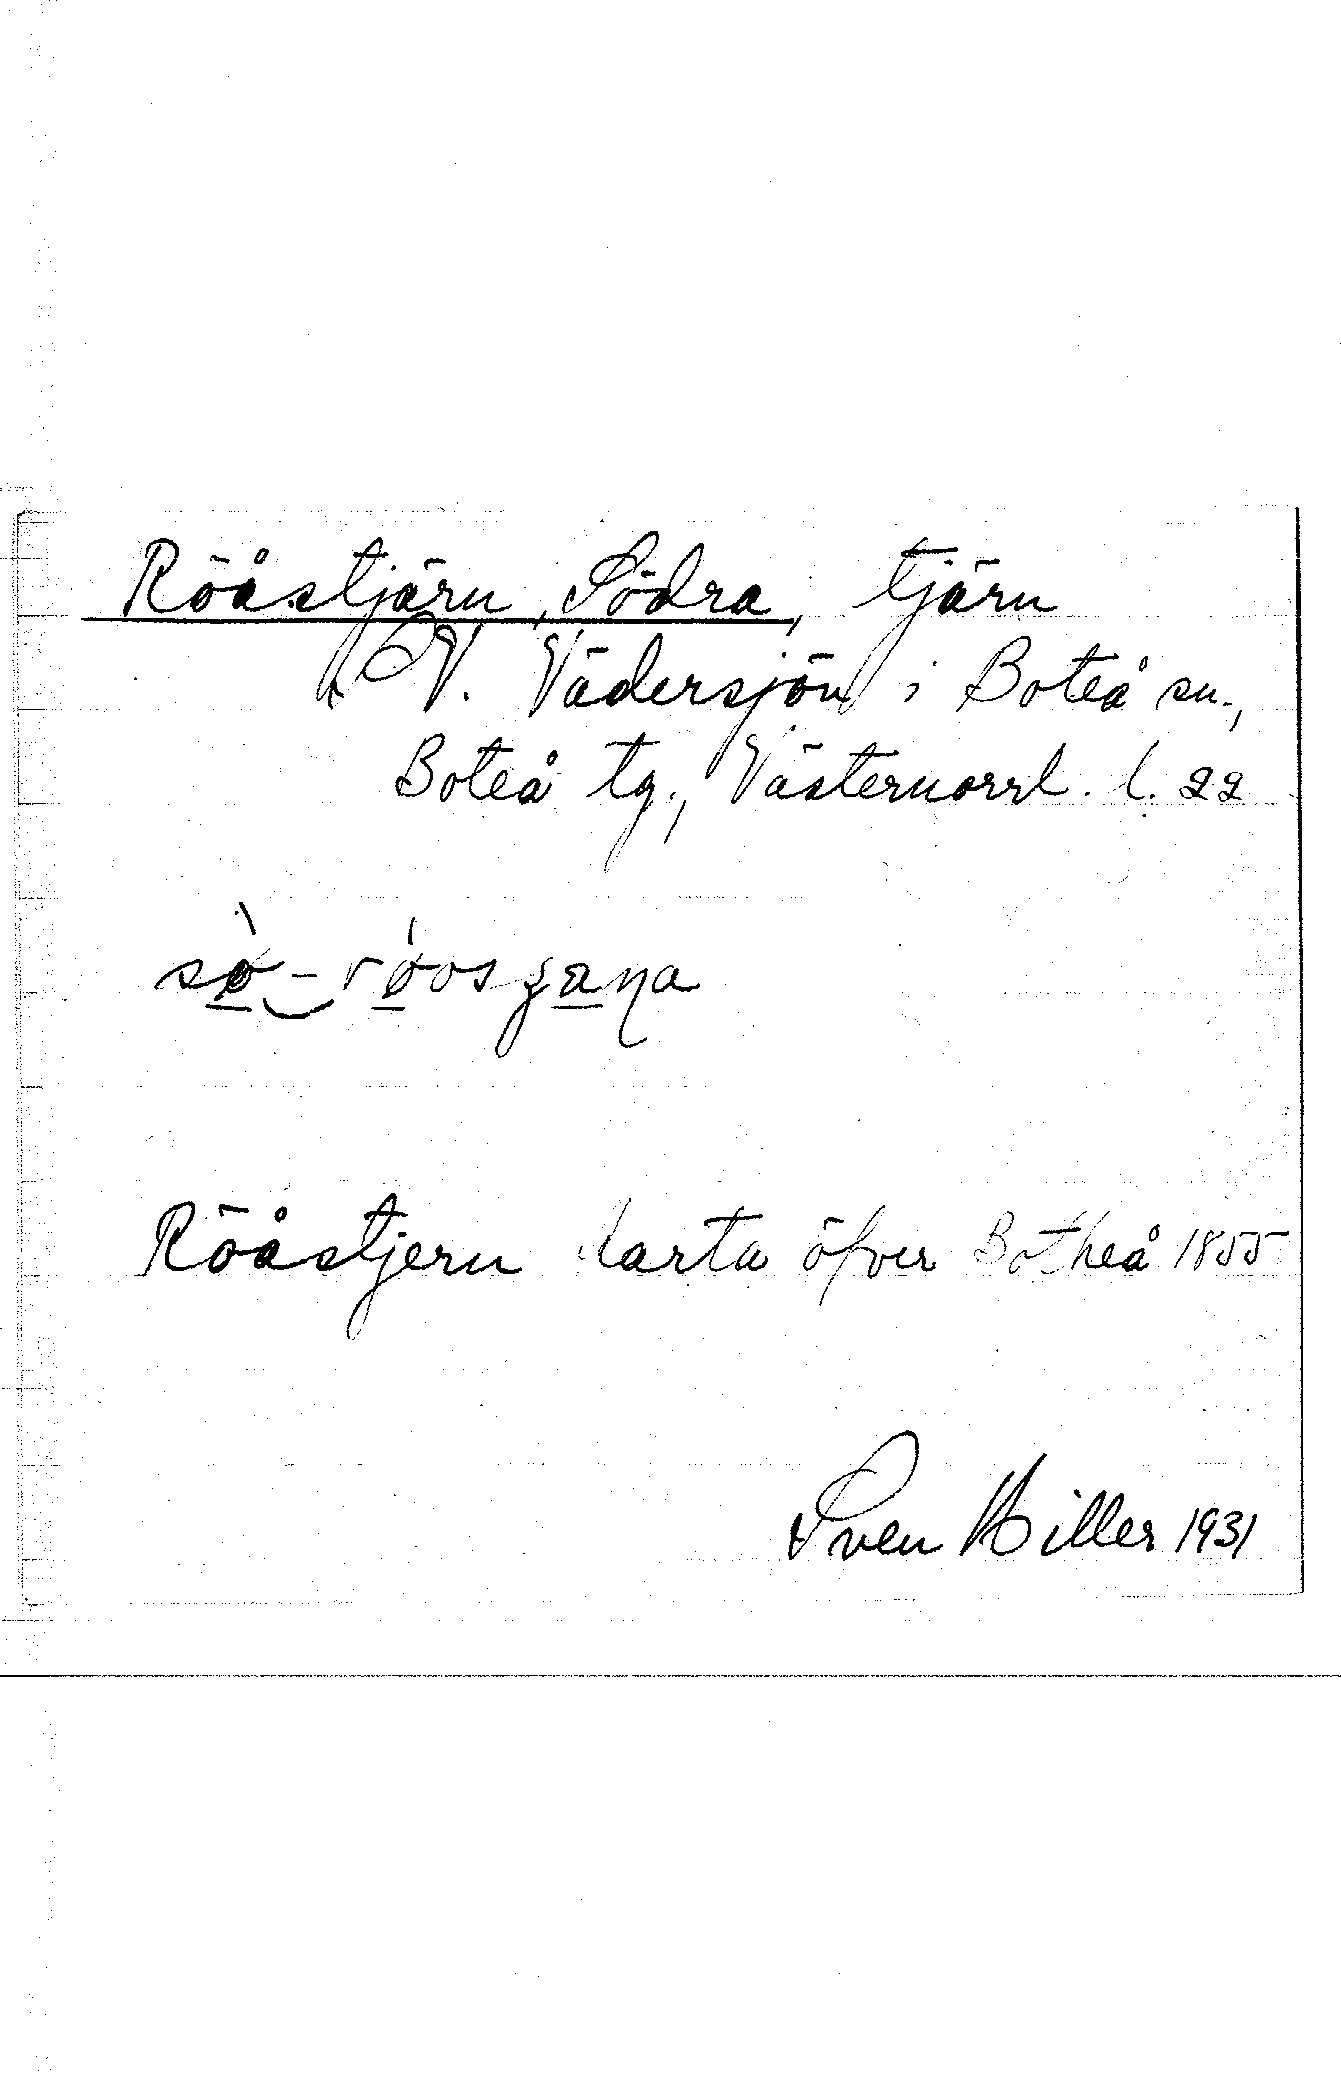 Röåstjärn, Södra, tjärn
V. Vädersjön i Boteå sn.,
Boteå tg., Västernorrl. l. 22
Röåstjern karta öfver Botheå 1855
Sven Hiller 1931